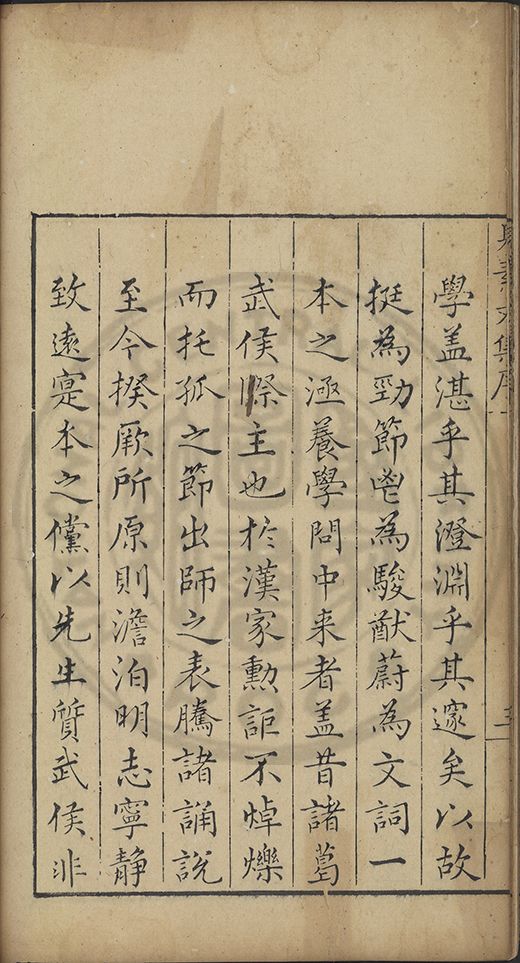 學盖湛乎其澄淵乎其邃矣以故
挺為勁節鬯為駿猷蔚為文詞一
本之涵養學問中来者盖昔諸葛
武侯際主也於漢家勳詎不焯爍
而托孤之節出師之表騰諸誦說
至今揆厥所原則澹泊明志寧静
致遠寔本之儻以先生質武侯非